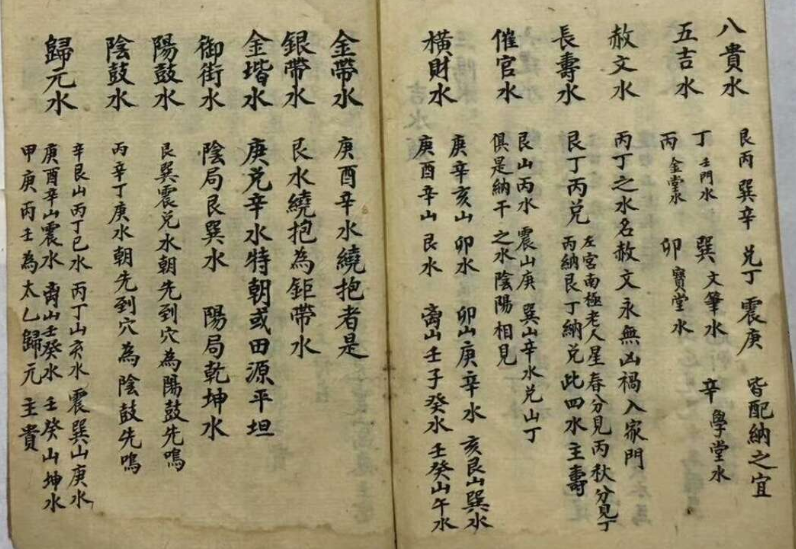 八貴水 艮丙 巽辛 兌丁 震庚 皆配納之宜
五吉水 丁 壬門水 巽 文筆水 辛 學堂水
丙 金堂水 卯 寶堂水
赦文水 丙丁之水名赦文永無凶禍入家門
長壽水 艮丁丙兌 左宮南極老人星春分見丙秋分見丁
丙納艮丁納兌此四水主壽
催官水 艮山丙水 震山庚 巽山辛水兌山丁
俱是納干之水陰陽相見
橫財水 庚辛亥山 卯水 卯山庚辛水 亥艮山巽水
庚酉辛山 艮水 离山壬子癸水 壬癸山午水
金帶水 庚酉辛水繞抱者是
銀帶水 艮水繞抱為鉅帶水
金堦水 庚兌辛水特朝或田源平坦
御街水 陰局艮巽水 陽局乾坤水
陽鼓水 艮巽震兌水朝先到穴為陽鼓先鳴
陰鼓水 丙辛丁庚水朝先到穴為陰鼓先鳴
歸元水 辛艮山丙丁巳水 丙丁山亥水 震巽山庚水
庚酉辛山震水 离山壬癸水 壬癸山坤水
甲庚丙壬為太乙歸元 主貴